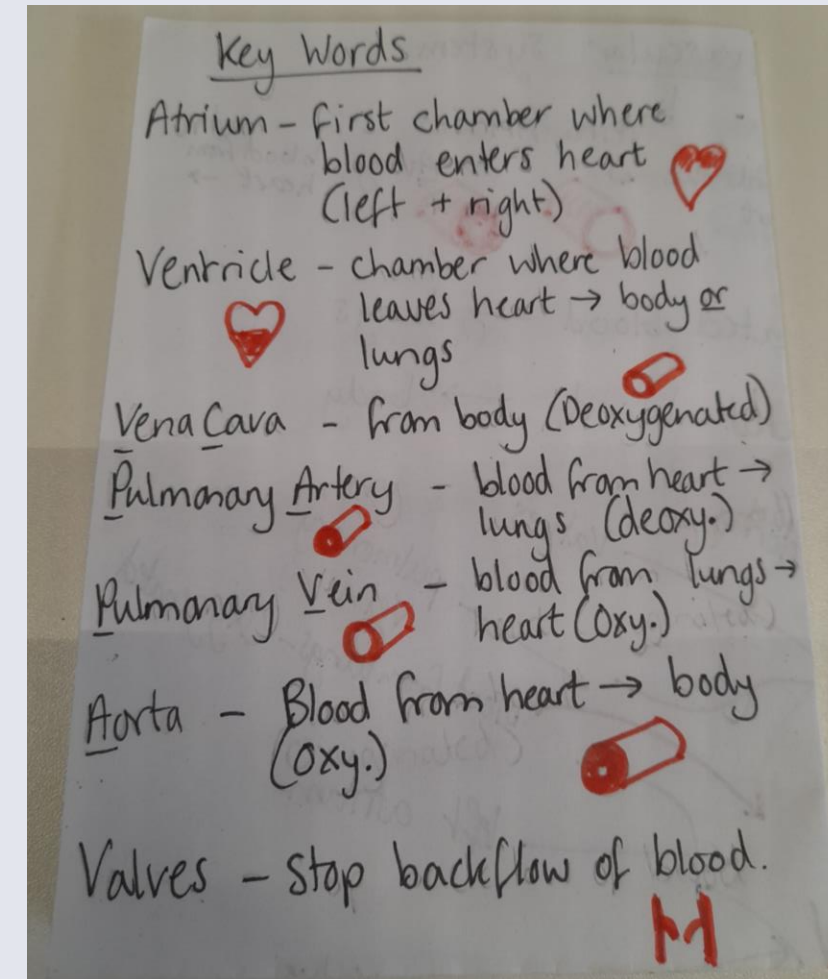 Key Words
Atrium - first chamber where
blood enters heart
(left + right)
Ventricle - chamber where blood
leaves heart → body or
lungs
Vena Cava - from body (Deoxygenated)
Pulmonary Artery - blood from heart →
lungs (deoxy.)
Pulmonary Vein - blood from lungs →
heart (Oxy.)
Aorta - Blood from heart → body
(Oxy.)
Valves - Stop backflow of blood.